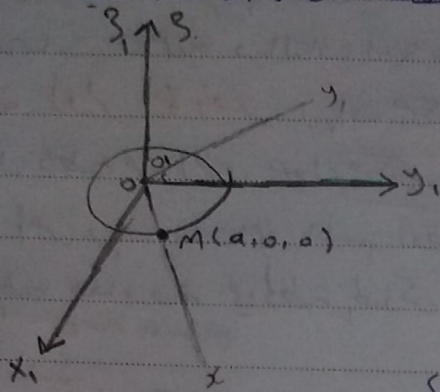 z₁ z
y₁
O₁
O
y₁
M(a,0,0)
x₁
x